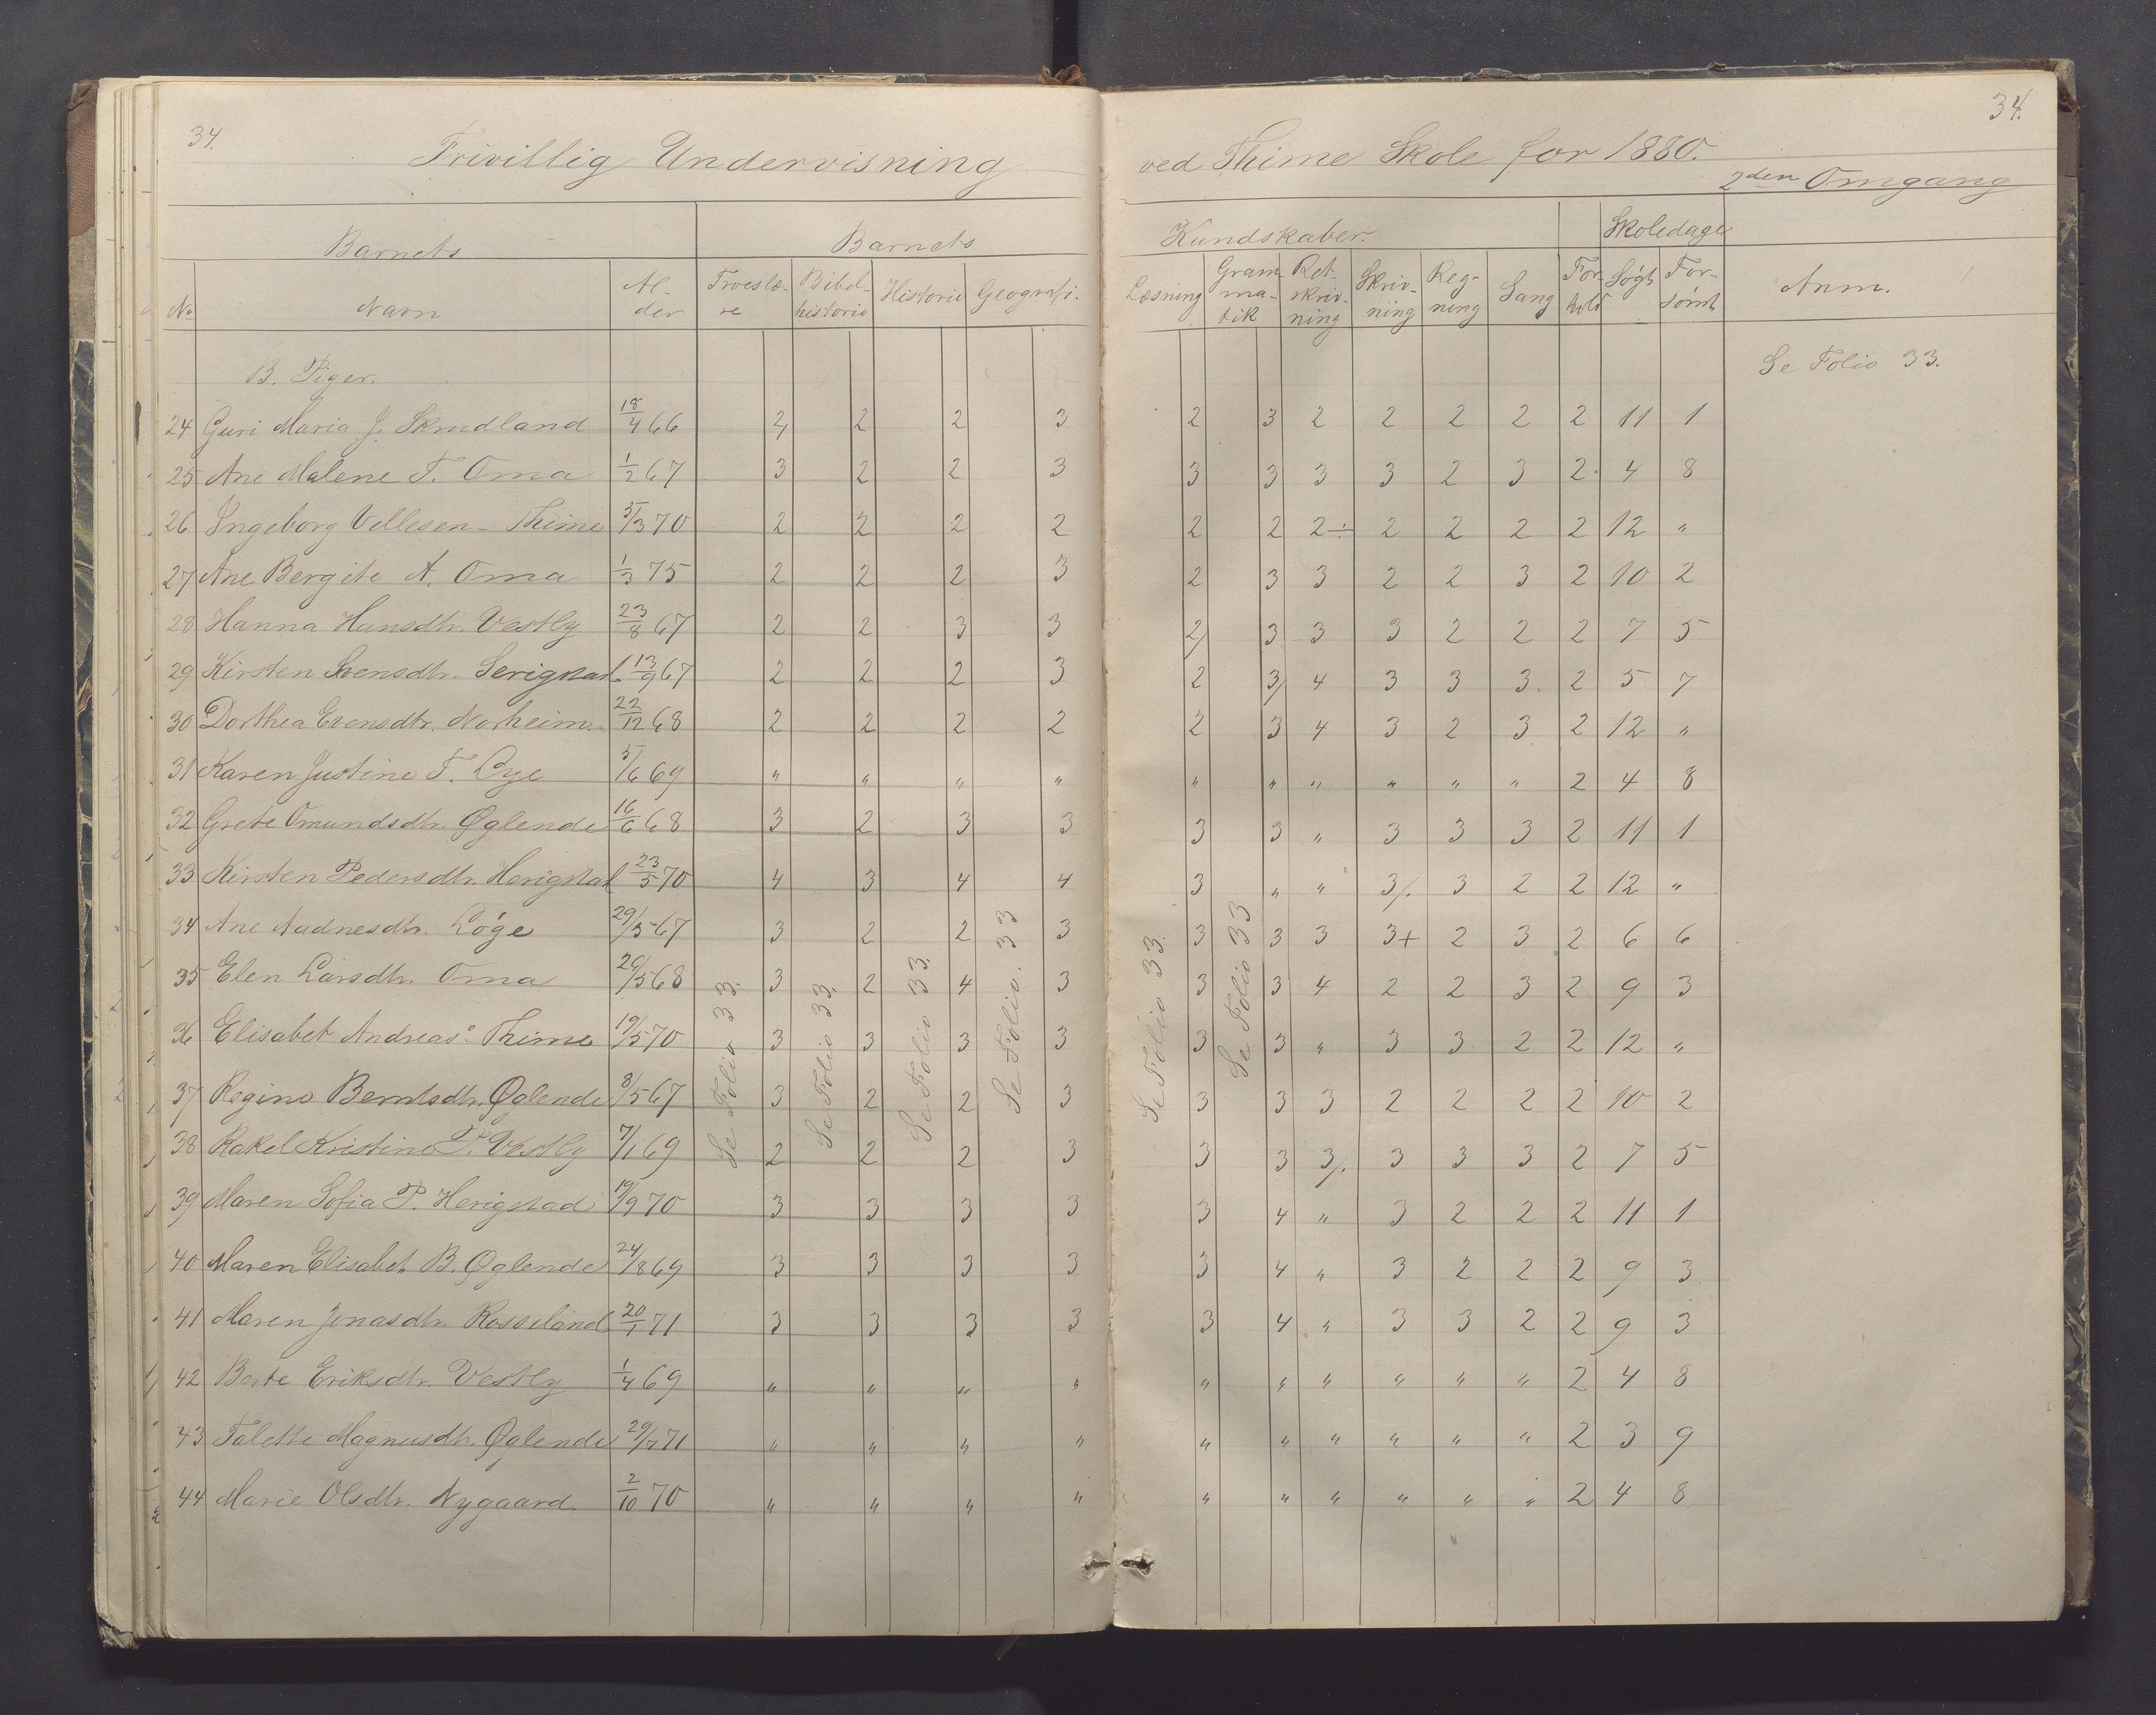 34.
34.
Frivillig Undervisning ved Thime Skole for 1880.
2den Omgang
Barnets Barnets Kundskaber. Skoledage
No Navn Alder Troeslære Bibelhistorie Historie Geografi. Læsning Gramatik Retskrivning Skrivning Regning Sang Forhold Søgt Forsømt Anm.
B. Piger.
Se Folio 33.
24 Guri Maria J. Skrudland 18/4 66 2 2 2 3 2 3 2 2 2 2 2 11 1
25 Ane Malene T. Oma 1/2 67 3 2 2 3 3 3 3 3 2 3 2 4 8
26 Ingeborg Vellesen Thime 5/3 70 2 2 2 2 2 2 2÷ 2 2 2 2 12 "
27 Ane Bergite A. Oma 1/3 75 2 2 2 3 2 3 3 2 2 3 2 10 2
28 Hanna Hansdtr. Vestly 23/8 67 2 2 3 3 2 3 3 3 2 2 2 7 5
29 Kirsten Svensdtr. Serigstad 13/9 67 2 2 2 3 2 3 4 3 3 3 2 5 7
30 Dorthea Evensdtr. Norheim 22/12 68 2 2 2 2 2 3 4 3 2 3 2 12 "
31 Karen Justine T. Lye 5/6 69 " " " " " " " " " " 2 4 8
32 Grete Omundsdtr. Øglende 16/6 68 3 2 3 3 3 3 " 3 3 3 2 11 1
33 Kirsten Pedersdtr. Herigstad 23/5 70 4 3 4 4 3 " " 3/. 3 2 2 12 "
34 Ane Audnesdtr. Løge 29/5 67 3 2 2 3 3 3 3 3+ 2 3 2 6 6
35 Elen Larsdtr. Oma 26/5 68 3 2 4 3 3 3 4 2 2 3 2 9 3
36 Elisabet Andreas: Thime 19/5 70 3 3 3 3 3 3 " 3 3 2 2 12 "
37 Regine Berntsdtr. Øglende 8/5 67 3 2 2 3 3 3 3 2 2 2 2 10 2
38 Rakel Kristine P. Vestly 7/1 69 2 2 2 3 3 3 3/. 3 3 3 2 7 5
39 Maren Sofia P. Herigstad 19/9 70 3 3 3 3 3 4 " 3 2 2 2 11 1
40 Maren Elisabet B. Øglende 24/8 69 3 3 3 3 3 4 " 3 2 2 2 9 3
41 Maren Jonasdtr. Rosseland 20/1 71 3 3 3 3 3 4 " 3 3 2 2 9 3
42 Berte Eriksdtr. Vestly 1/4 69 " " " " " " " " " " 2 4 8
43 Talette Magnusdtr. Øglende 29/7 71 " " " " " " " " " " 2 3 9
44 Marie Olsdtr. Nygaard. 2/10 70 " " " " " " " " " " 2 4 8
Se Folio 33.
Se Folio 33.
Se Folio 33.
Se Folio. 33
Se Folio 33.
Se Folio 33